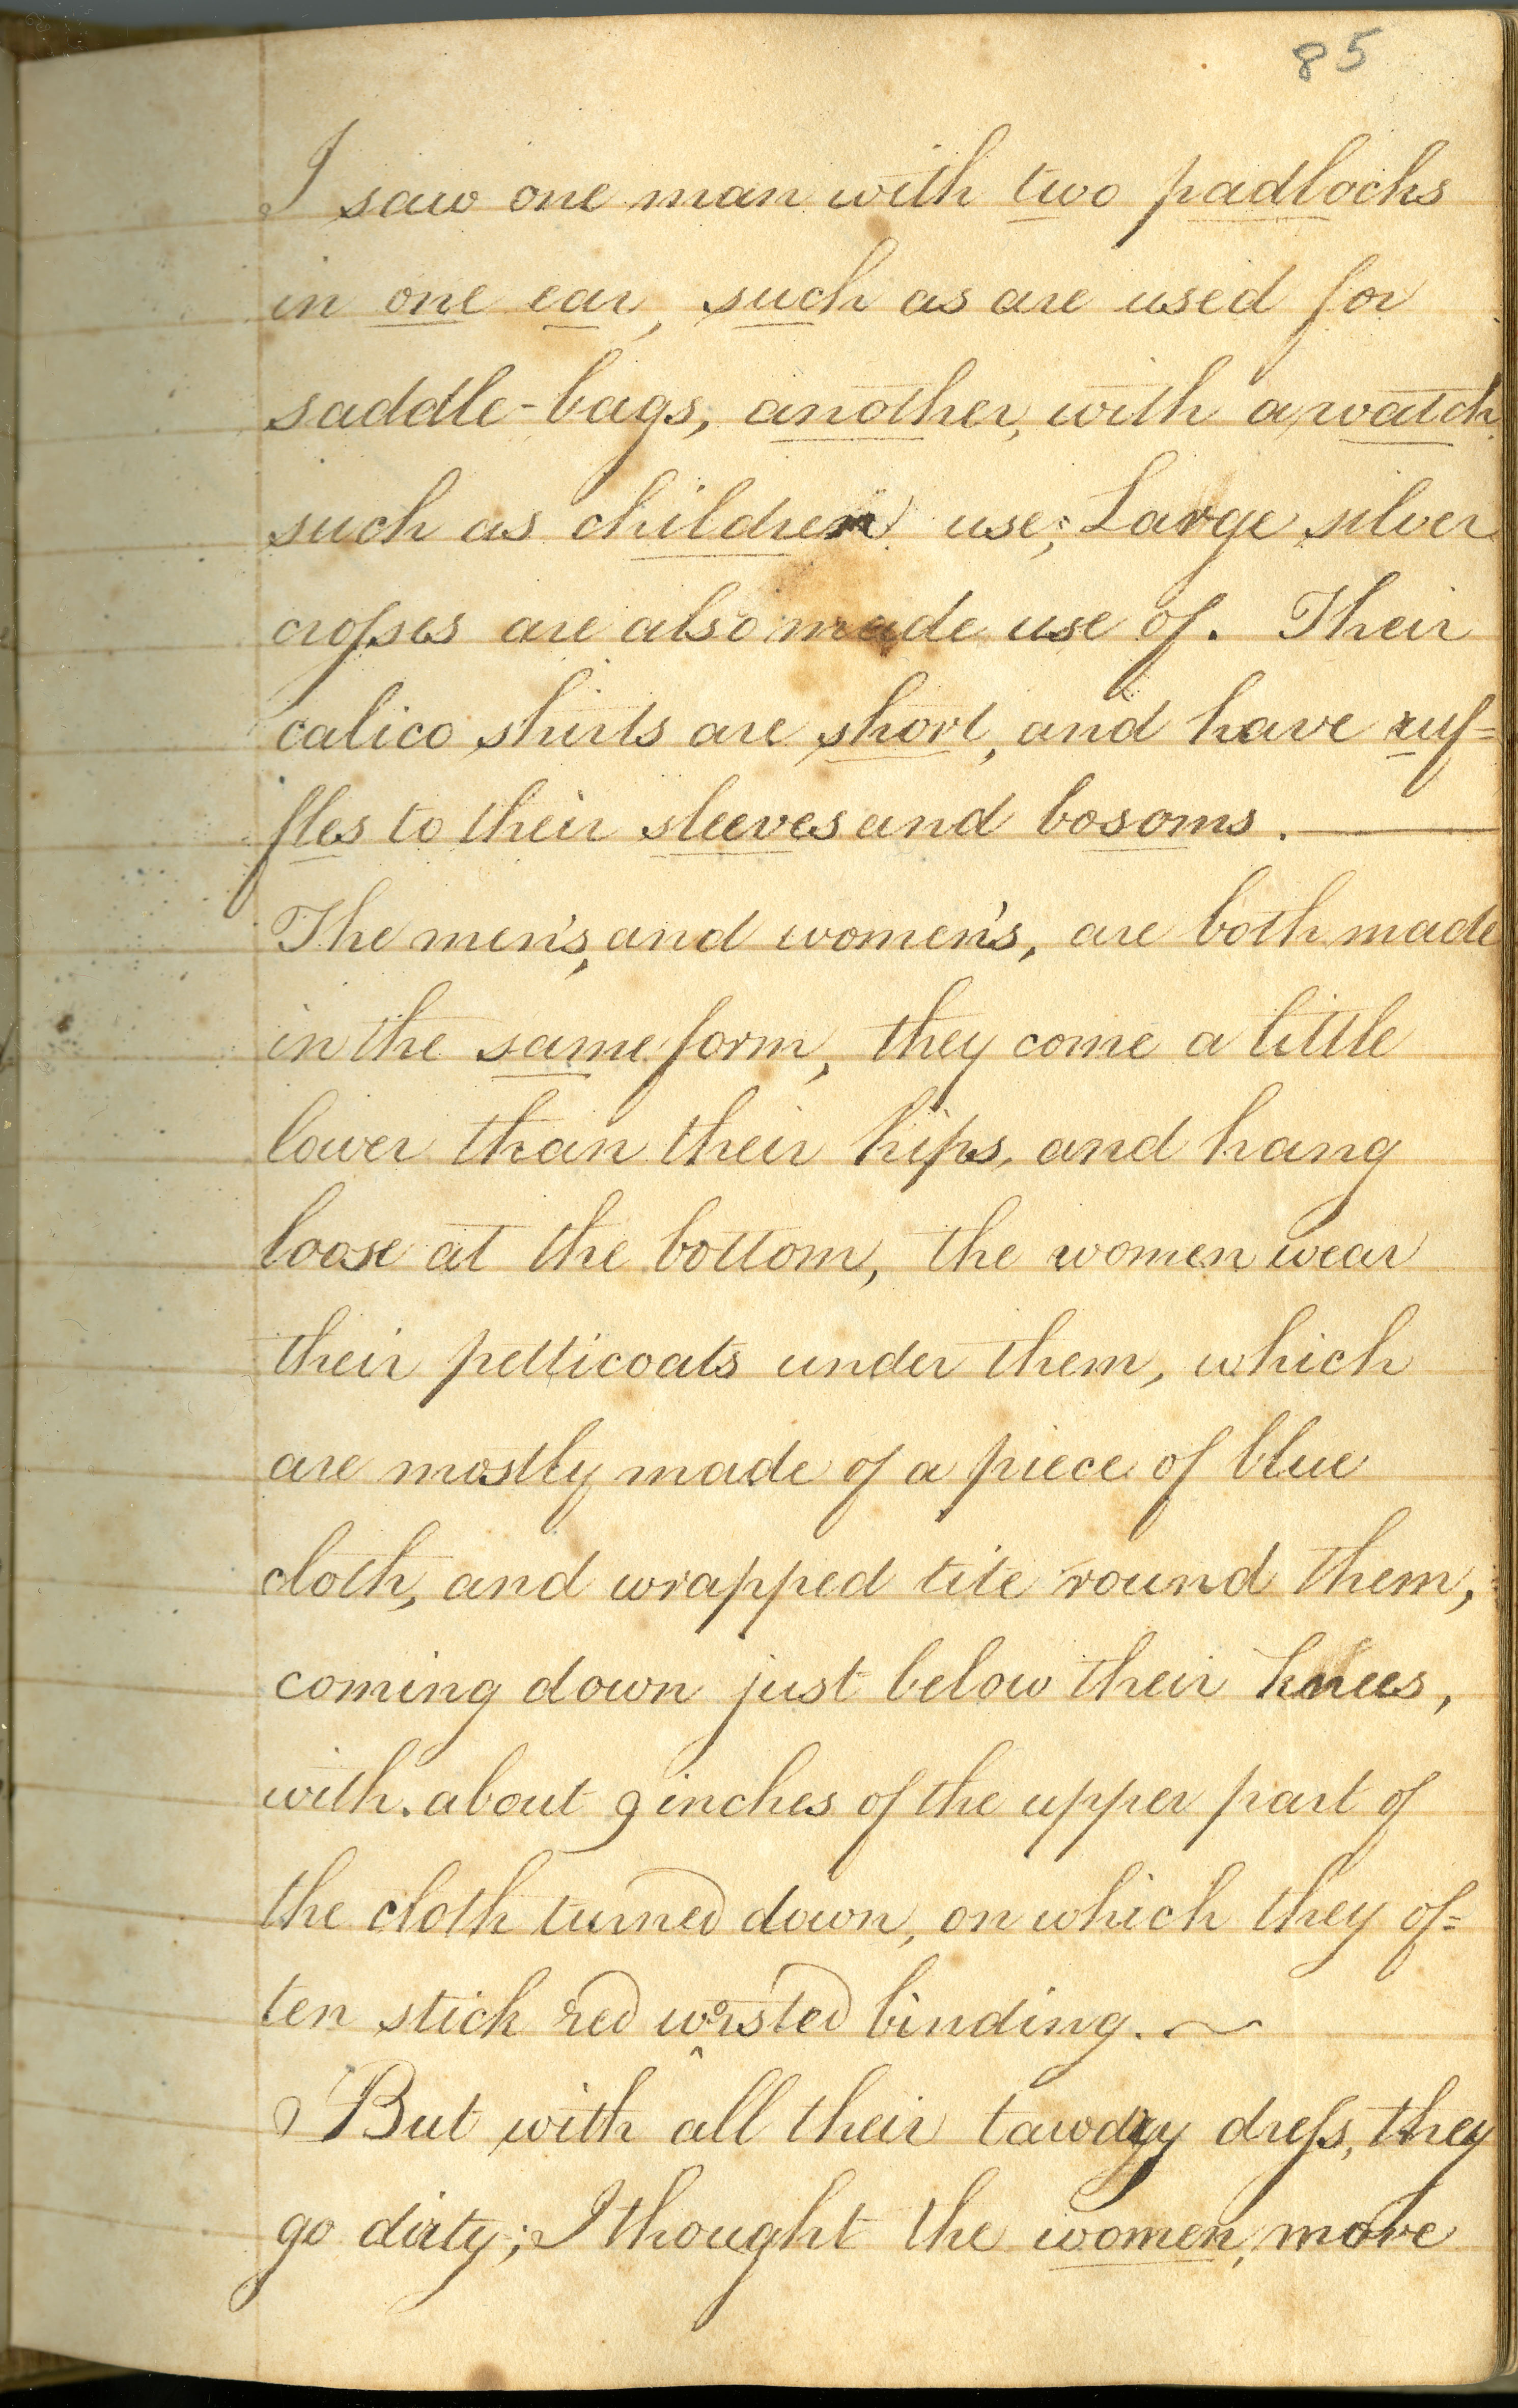 85
I saw one man with two padlocks
in one ear, such as are used for
saddle-bags, another, with a watch
such as children use; Large silver
croſses are also made use of. Their
calico shirts are short, and have ruf=
fles to their sleeves and bosoms.
The men's, and women's, are both made
in the same form, they come a little
lower than their hips, and hang
loose at the bottom, the women wear
their petticoats under them, which
are mostly made of a piece of blue
cloth, and wrapped tite round them,
coming down just below their knees,
with about 9 inches of the upper part of
the cloth turned down, on which they of=
ten stick red worsted binding. ~
But with all their tawdry dreſs, they
go dirty; I thought the women, more